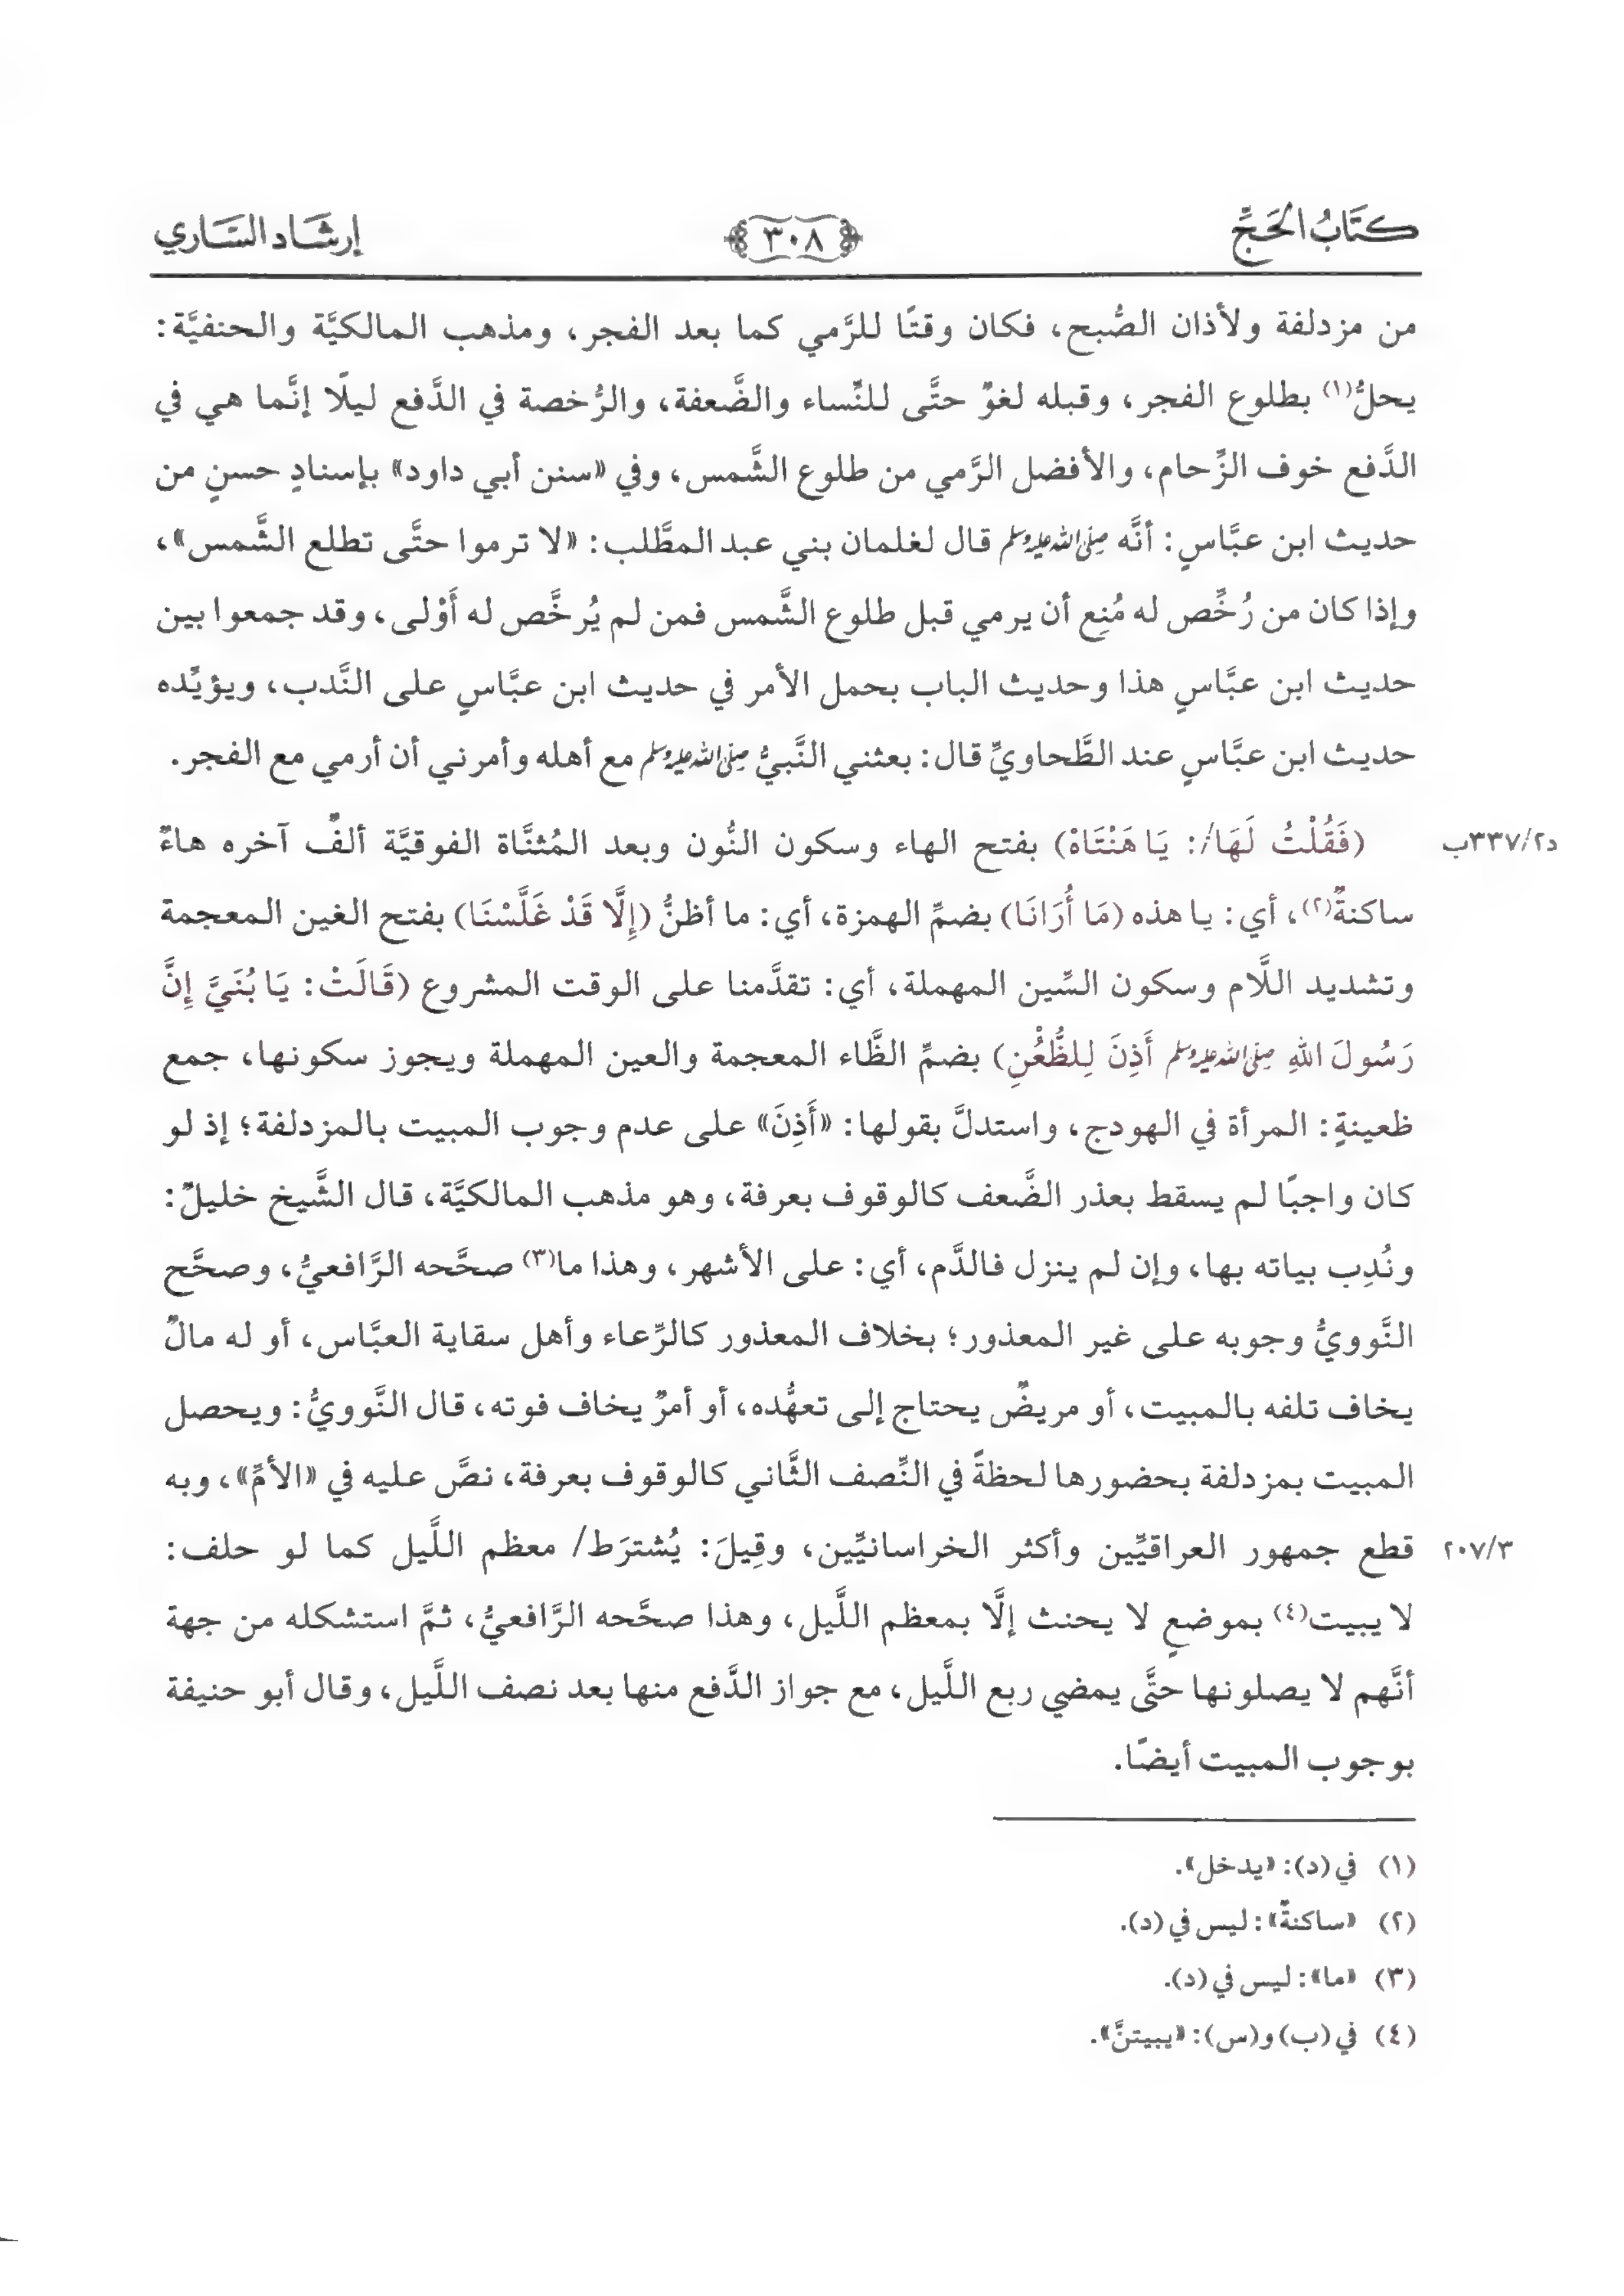 كِتَابُ الحَجِّ
٣٠٨
إرشَاد السَّاري
من مزدلفة ولأذان الصُّبح، فكان وقتًا للرَّمي كما بعد الفجر، ومذهب المالكيَّة والحنفيَّة:
يحلُّ(١) بطلوع الفجر، وقبله لغوٌ حتَّى للنِّساء والضَّعفة، والرُّخصة في الدَّفع ليلًا إنَّما هي في
الدَّفع خوف الزِّحام، والأفضل الرَّمي من طلوع الشَّمس، وفي «سنن أبي داود» بإسنادٍ حسنٍ من
حديث ابن عبَّاسٍ: أنَّه صلى الله عليه وسلم قال لغلمان بني عبد المطَّلب: «لا ترموا حتَّى تطلع الشَّمس»،
وإذا كان من رُخِّص له مُنِع أن يرمي قبل طلوع الشَّمس فمن لم يُرخَّص له أَوْلى، وقد جمعوا بين
حديث ابن عبَّاسٍ هذا وحديث الباب بحمل الأمر في حديث ابن عبَّاسٍ على النَّدب، ويؤيِّده
حديث ابن عبَّاسٍ عند الطَّحاويِّ قال: بعثني النَّبيُّ صلى الله عليه وسلم مع أهله وأمرني أن أرمي مع الفجر.
د٣٣٧/٢ب
(فَقُلْتُ لَهَا/: يَا هَنْتَاهْ) بفتح الهاء وسكون النُّون وبعد المُثنَّاة الفوقيَّة ألفٌ آخره هاءٌ
ساكنةٌ(٢)، أي: يا هذه (مَا أُرَانَا) بضمِّ الهمزة، أي: ما أظنُّ (إِلَّا قَدْ غَلَّسْنَا) بفتح الغين المعجمة
وتشديد اللَّام وسكون السِّين المهملة، أي: تقدَّمنا على الوقت المشروع (قَالَتْ: يَا بُنَيَّ إِنَّ
رَسُولَ اللهِ صلى الله عليه وسلم أَذِنَ لِلظُّعُْنِ) بضمِّ الظَّاء المعجمة والعين المهملة ويجوز سكونها، جمع
ظعينةٍ: المرأة في الهودج، واستدلَّ بقولها: «أَذِنَ» على عدم وجوب المبيت بالمزدلفة؛ إذ لو
كان واجبًا لم يسقط بعذر الضَّعف كالوقوف بعرفة، وهو مذهب المالكيَّة، قال الشَّيخ خليلٌ:
ونُدِب بياته بها، وإن لم ينزل فالدَّم، أي: على الأشهر، وهذا ما(٣) صحَّحه الرَّافعيُّ، وصحَّح
النَّوويُّ وجوبه على غير المعذور؛ بخلاف المعذور كالرِّعاء وأهل سقاية العبَّاس، أو له مالٌ
يخاف تلفه بالمبيت، أو مريضٌ يحتاج إلى تعهُّده، أو أمرٌ يخاف فوته، قال النَّوويُّ: ويحصل
المبيت بمزدلفة بحضورها لحظةً في النِّصف الثَّاني كالوقوف بعرفة، نصَّ عليه في «الأمِّ»، وبه
٢٠٧/٣
قطع جمهور العراقيِّين وأكثر الخراسانيِّين، وقِيلَ: يُشترَط/ معظم اللَّيل كما لو حلف:
لا يبيت(٤) بموضعٍ لا يحنث إلَّا بمعظم اللَّيل، وهذا صحَّحه الرَّافعيُّ، ثمَّ استشكله من جهة
أنَّهم لا يصلونها حتَّى يمضي ربع اللَّيل، مع جواز الدَّفع منها بعد نصف اللَّيل، وقال أبو حنيفة
بوجوب المبيت أيضًا.
(١) في (د): «يدخل».
(٢) «ساكنةٌ»: ليس في (د).
(٣) «ما»: ليس في (د).
(٤) في (ب) و(س): «يبيتنَّ».